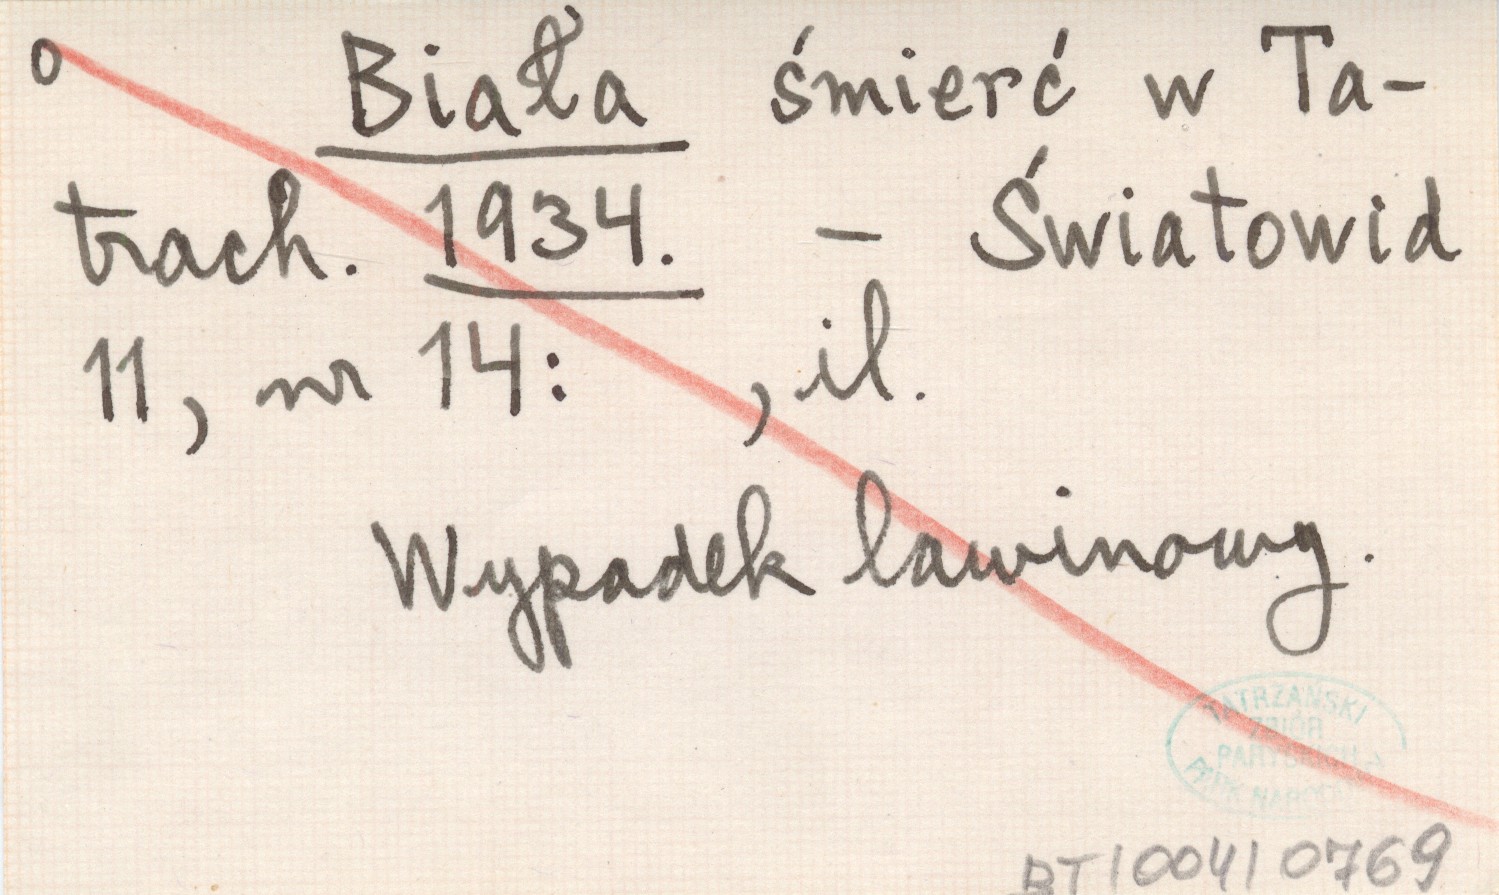 o Biała śmierć w Ta-
trach. 1934. — Światowid
11, nr 14: , il.
Wypadek lawinowy.
TATRZAŃSKI
ZBIÓR
PARYSKICH
PARK NARODOWY
BT/004/0769